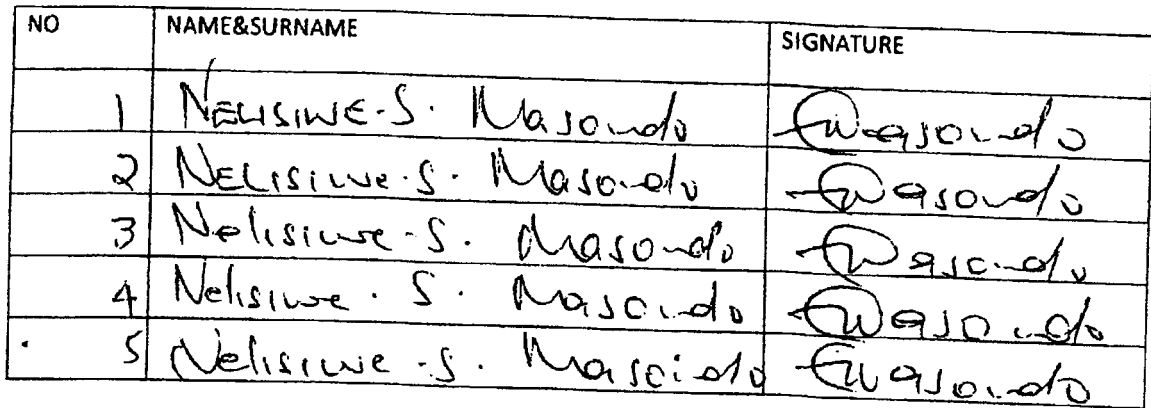 NO NAME&SURNAME SIGNATURE
1 NELISIWE-S. Masondo Masondo
2 NELISIWE.S. Masondo Masondo
3 Nelisiwe-S. Masondo Masondo
4 Nelisiwe. S. Masondo Masondo
5 Nelisiwe-S. Masondo Masondo